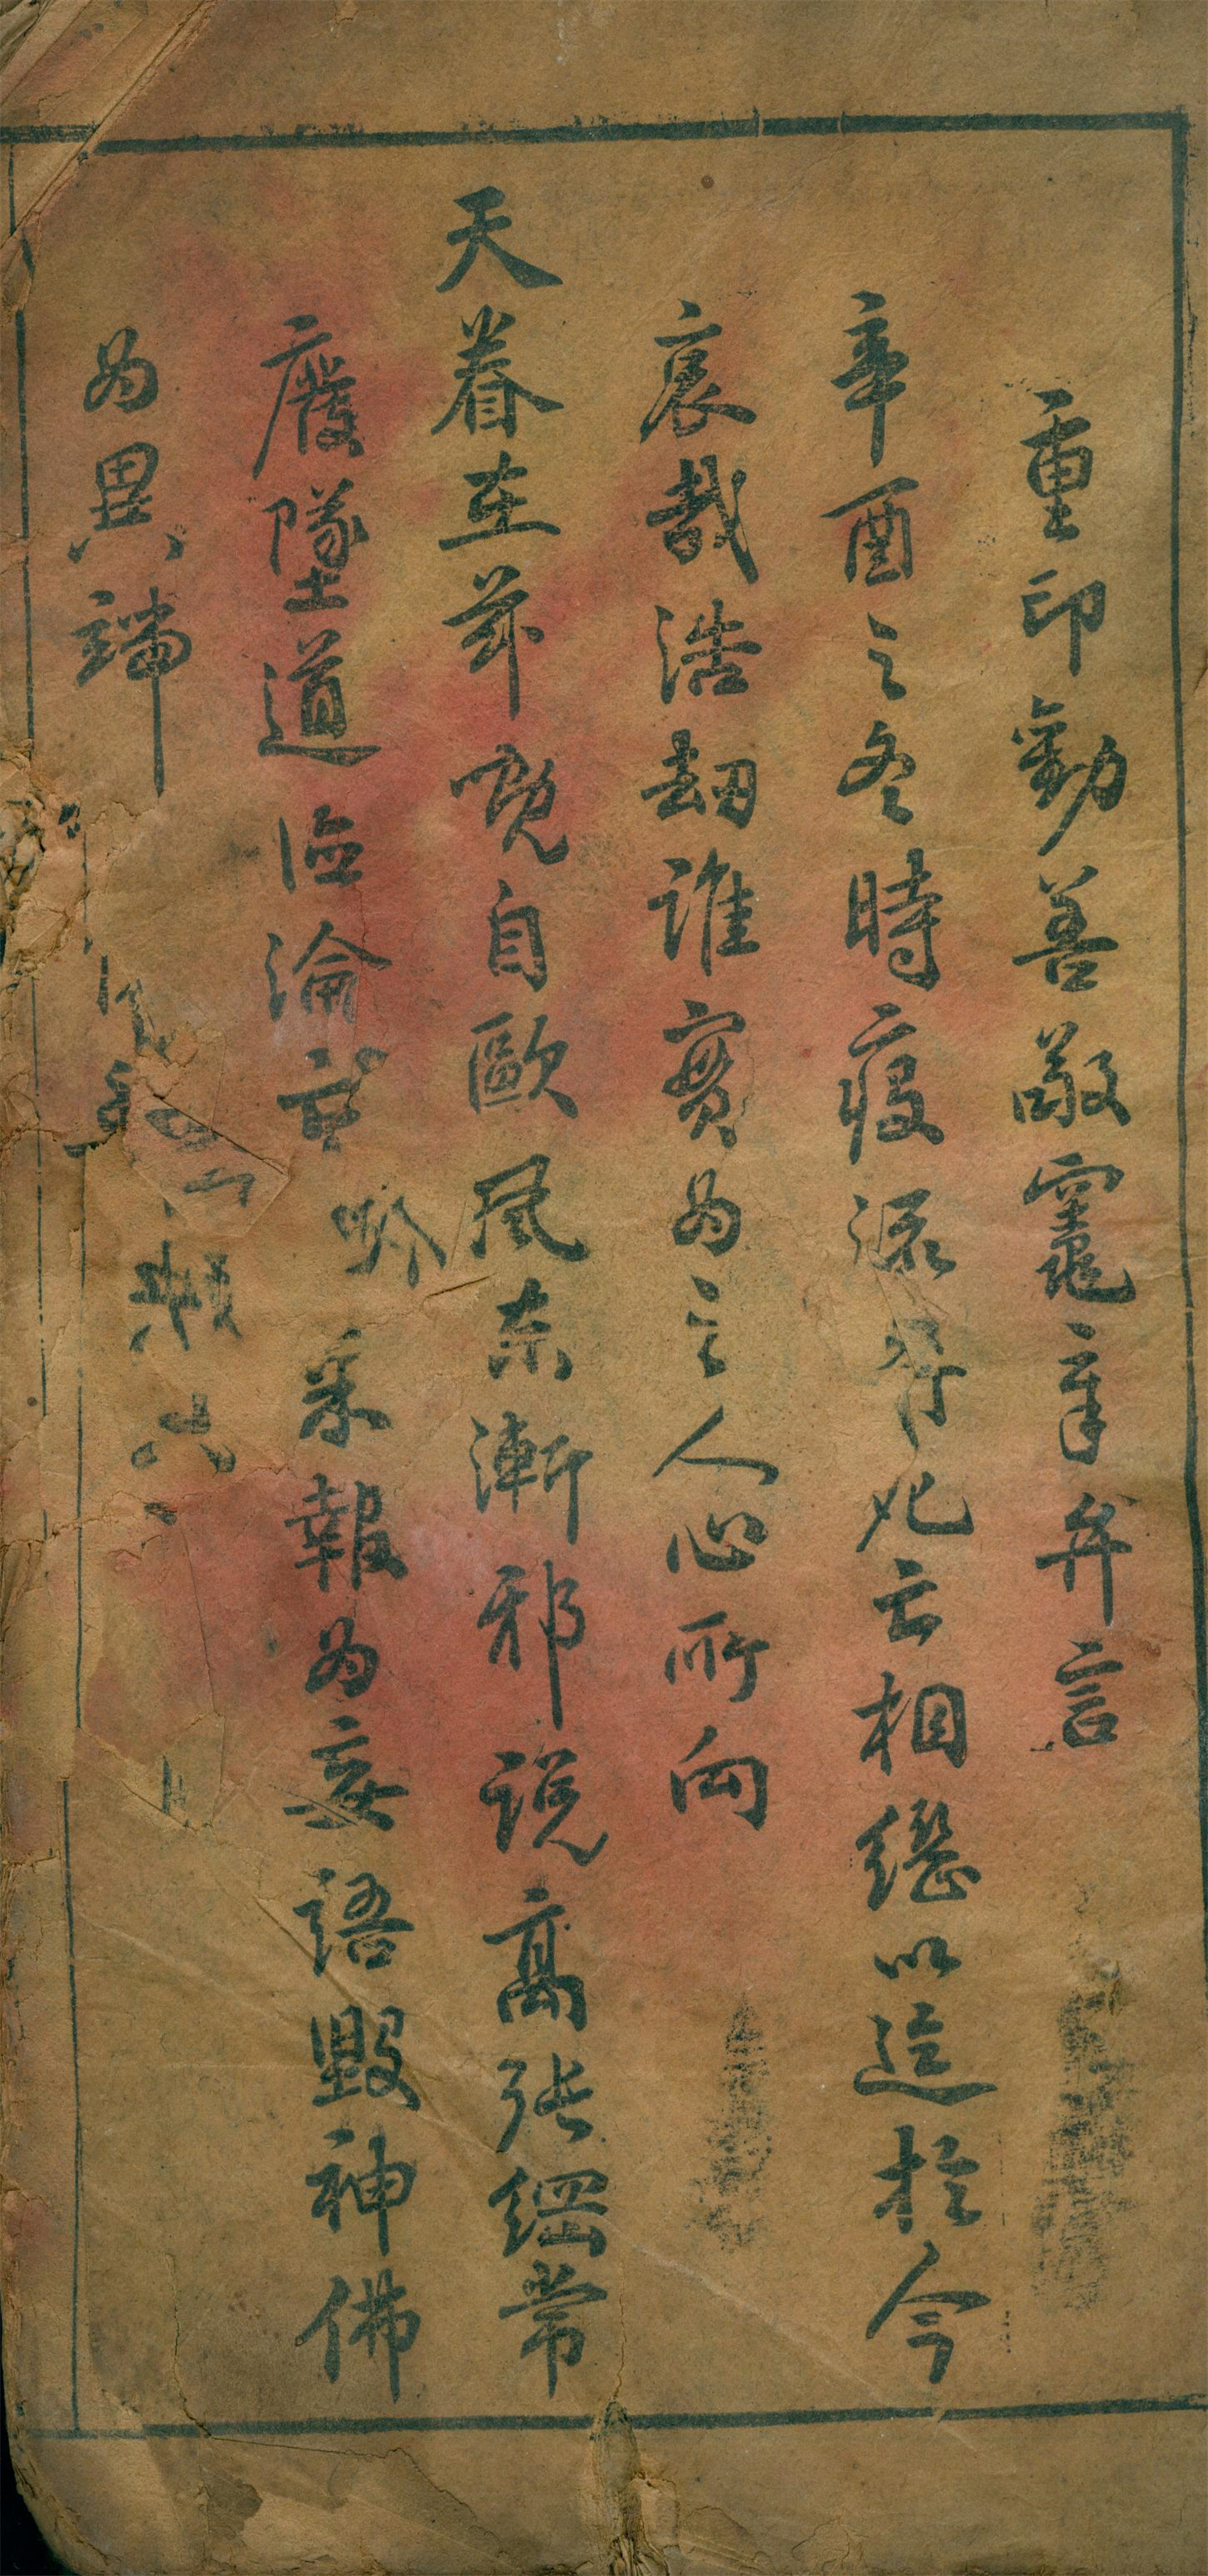 重印勸善敬竈章弁言
辛酉之冬時疫流行死亡相繼以迄於今
哀哉浩劫誰實為之人心所向
天眷在茲慨自歐風東漸邪說高張綱常
廢墜道德淪亡果報為妄語毀神佛
為異端